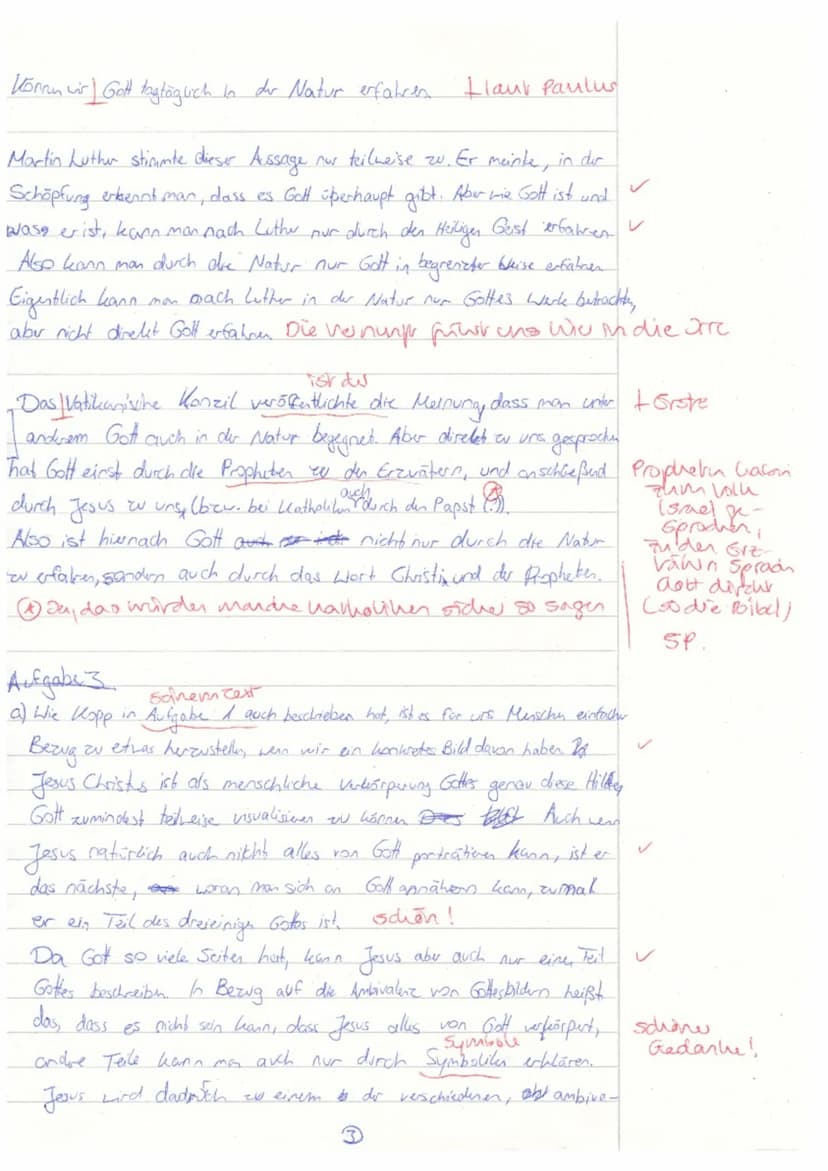 Können wir | Gott tagtäglich in der Natur erfahren. ⊥ laut Paulus
Martin Luther stimmte dieser Aussage nur teilweise zu. Er meinte, in der
Schöpfung erkennt man, dass es Gott überhaupt gibt. Aber wie Gott ist und ✓
was er ist, kann man nach Luther nur durch den Heiligen Geist erfahren. ✓
Also kann man durch die Natur nur Gott in begrenzter Weise erfahren.
Eigentlich kann man nach Luther in der Natur nur Gottes Werke betrachten,
aber nicht direkt Gott erfahren. Die Vernunft führt uns hier in die Irre
ist der
Das | Vatikanische Konzil veröffentlichte die Meinung, dass man unter ⊥ Erste
anderem Gott auch in der Natur begegnet. Aber direkt zu uns gesprochen
hat Gott einst durch die Propheten zu den Erzvätern, und anschließend
durch Jesus zu uns, (bzw. bei Katholiken auch durch den Papst (?)).
Also ist hiernach Gott nicht nur durch die Natur
zu erfahren, sondern auch durch das Wort Christi und der Propheten.
Ja, das würden manche Katholiken sicher so sagen
Propheten haben
zum Volk
Israel ge-
sprochen,
zu den Erz-
vätern sprach
Gott direkt
(so die Bibel)
SP.
Aufgabe 3
seinem Text
a) Wie Kopp in Aufgabe 1 auch beschrieben hat, ist es für uns Menschen einfacher
Bezug zu etwas herzustellen, wenn wir ein konkretes Bild davon haben. ✓
Jesus Christus ist als menschliche Verkörperung Gottes genau diese Hilfe,
Gott zumindest teilweise visualisieren zu können. Auch wenn
Jesus natürlich auch nicht alles von Gott porträtieren kann, ist er ✓
das nächste, woran man sich an Gott annähern kann, zumal
er ein Teil des dreieinigen Gottes ist. schön!
Da Gott so viele Seiten hat, kann Jesus aber auch nur einen Teil ✓
Gottes beschreiben. In Bezug auf die Ambivalenz von Gottesbildern heißt
das, dass es nicht sein kann, dass Jesus alles von Gott verkörpert, schöner
Symbole Gedanke!
andre Teile kann man auch nur durch Symboliken erklären.
Jesus wird dadurch zu einem der verschiedenen, ambiva-
3